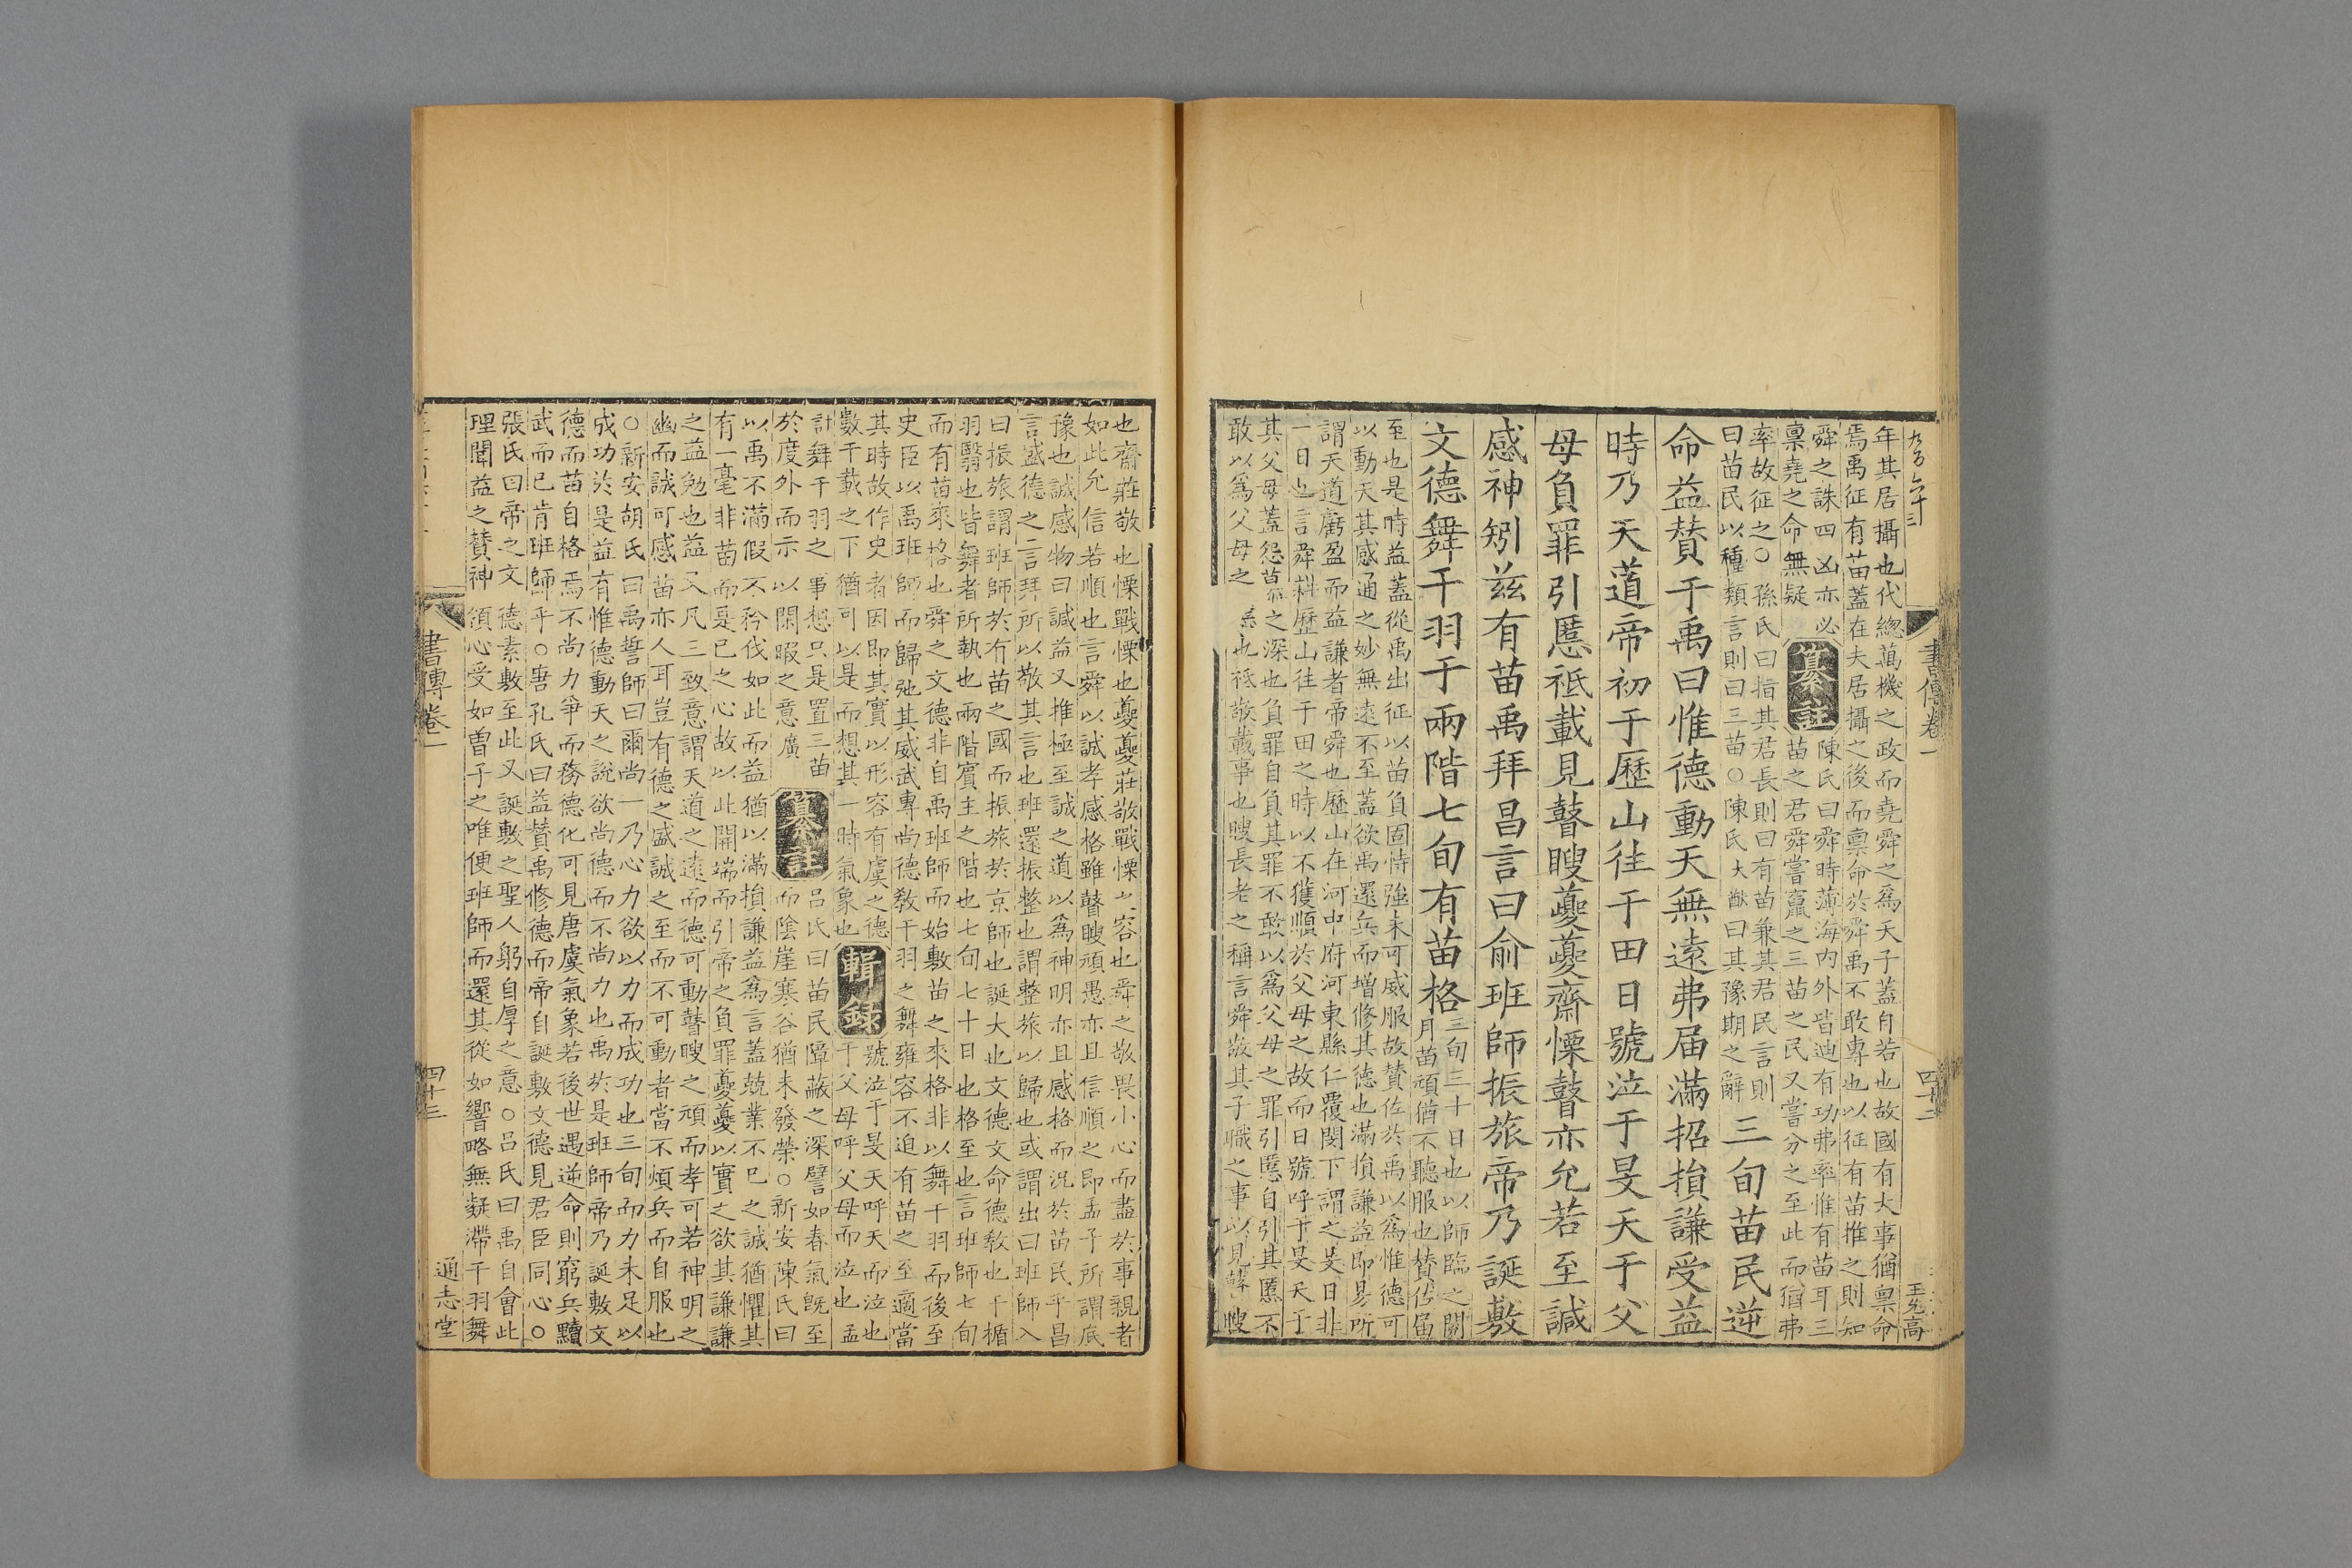 書傳卷一
四十二
王允高
年其居攝也代總萬機之政而堯舜之爲天子蓋自若也故國有大事猶禀命
焉禹征有苗蓋在夫居攝之後而禀命於舜禹不敢專也以征有苗推之則知
舜之誅四凶亦必
禀堯之命無疑
纂註
陳氏曰舜時薄海內外皆迪有功弗率惟有苗耳三
苗之君舜嘗竄之三苗之民又嘗分之至此而猶弗
率故征之○孫氏曰指其君長則曰有苗兼其君民言則
曰苗民以種類言則曰三苗○陳氏大猷曰其豫期之辭
三旬苗民逆
命益贊于禹曰惟德動天無遠弗届滿招損謙受益
時乃天道帝初于歷山往于田日號泣于旻天于父
母負罪引慝祗載見瞽瞍夔夔齋慄瞽亦允若至諴
感神矧兹有苗禹拜昌言曰俞班師振旅帝乃誕敷
文德舞干羽于兩階七旬有苗格
三旬三十日也以師臨之閱
月苗頑猶不聽服也贊佐届
至也是時益蓋從禹出征以苗負固恃強未可威服故贊佐於禹以爲惟德可
以動天其感通之妙無遠不至蓋欲禹還兵而增修其德也滿損謙益即易所
謂天道虧盈而益謙者帝舜也歷山在河中府河東縣仁覆閔下謂之旻日非
一日也言舜耕歷山往于田之時以不獲順於父母之故而日號呼于旻天于
其父母蓋怨慕之深也負罪自負其罪不敢以爲父母之罪引慝自引其慝不
敢以爲父母之也祗敬載事也瞍長老之稱言舜敬其子職之事以見瞽瞍
也齋莊敬也慄戰慄也夔夔莊敬戰慄之容也舜之敬畏小心而盡於事親者
如此允信若順也言舜以誠孝感格雖瞽瞍頑愚亦且信順之即孟子所謂底
豫也諴感物曰諴益又推極至諴之道以爲神明亦且感格而況於苗民乎昌
言盛德之言拜所以敬其言也班還振整也謂整旅以歸也或謂出曰班師入
曰振旅謂班師於有苗之國而振旅於京師也誕大也文德文命德敎也干楯
羽翳也皆舞者所執也兩階賓主之階也七旬七十日也格至也言班師七旬
而有苗來格也舜之文德非自禹班師而始敷苗之來格非以舞干羽而後至
史臣以禹班師而歸弛其威武專尚德敎干羽之舞雍容不迫有苗之至適當
其時故作史者因即其實以形容有虞之德
數千載之下猶可以是而想其一時氣象也
輯錄
號泣于旻天呼天而泣也
于父母呼父母而泣也孟
計舞干羽之事想只是置三苗
於度外而示以閑暇之意廣
纂註
呂氏曰苗民障蔽之深譬如春氣旣至
而陰崖寒谷猶未發榮○新安陳氏曰
以禹不滿假不矜伐如此而益猶以滿損謙益爲言蓋兢業不已之誠猶懼其
有一毫非苗而是已之心故以此開端而引帝之負罪夔夔以實之欲其謙謙
之益勉也益又凡三致意謂天道之遠而德可動瞽瞍之頑而孝可若神明之
幽而誠可感苗亦人耳豈有德之盛誠之至而不可動者當不煩兵而自服也
○新安胡氏曰禹誓師曰爾尚一乃心力欲以力而成功也三旬而力未足以
成功於是益有惟德動天之說欲尚德而不尚力也禹於是班師帝乃誕敷文
德而苗自格焉不尚力爭而務德化可見唐虞氣象若後世遇逆命則窮兵黷
武而已肯班師乎○唐孔氏曰益贊禹修德而帝自誕敷文德見君臣同心○
張氏曰帝之文德素敷至此又誕敷之聖人躬自厚之意○呂氏曰禹自會此
理聞益之贊神領心受如曾子之唯便班師而還其從如響略無凝滯干羽舞
書傳卷一
四十三
通志堂